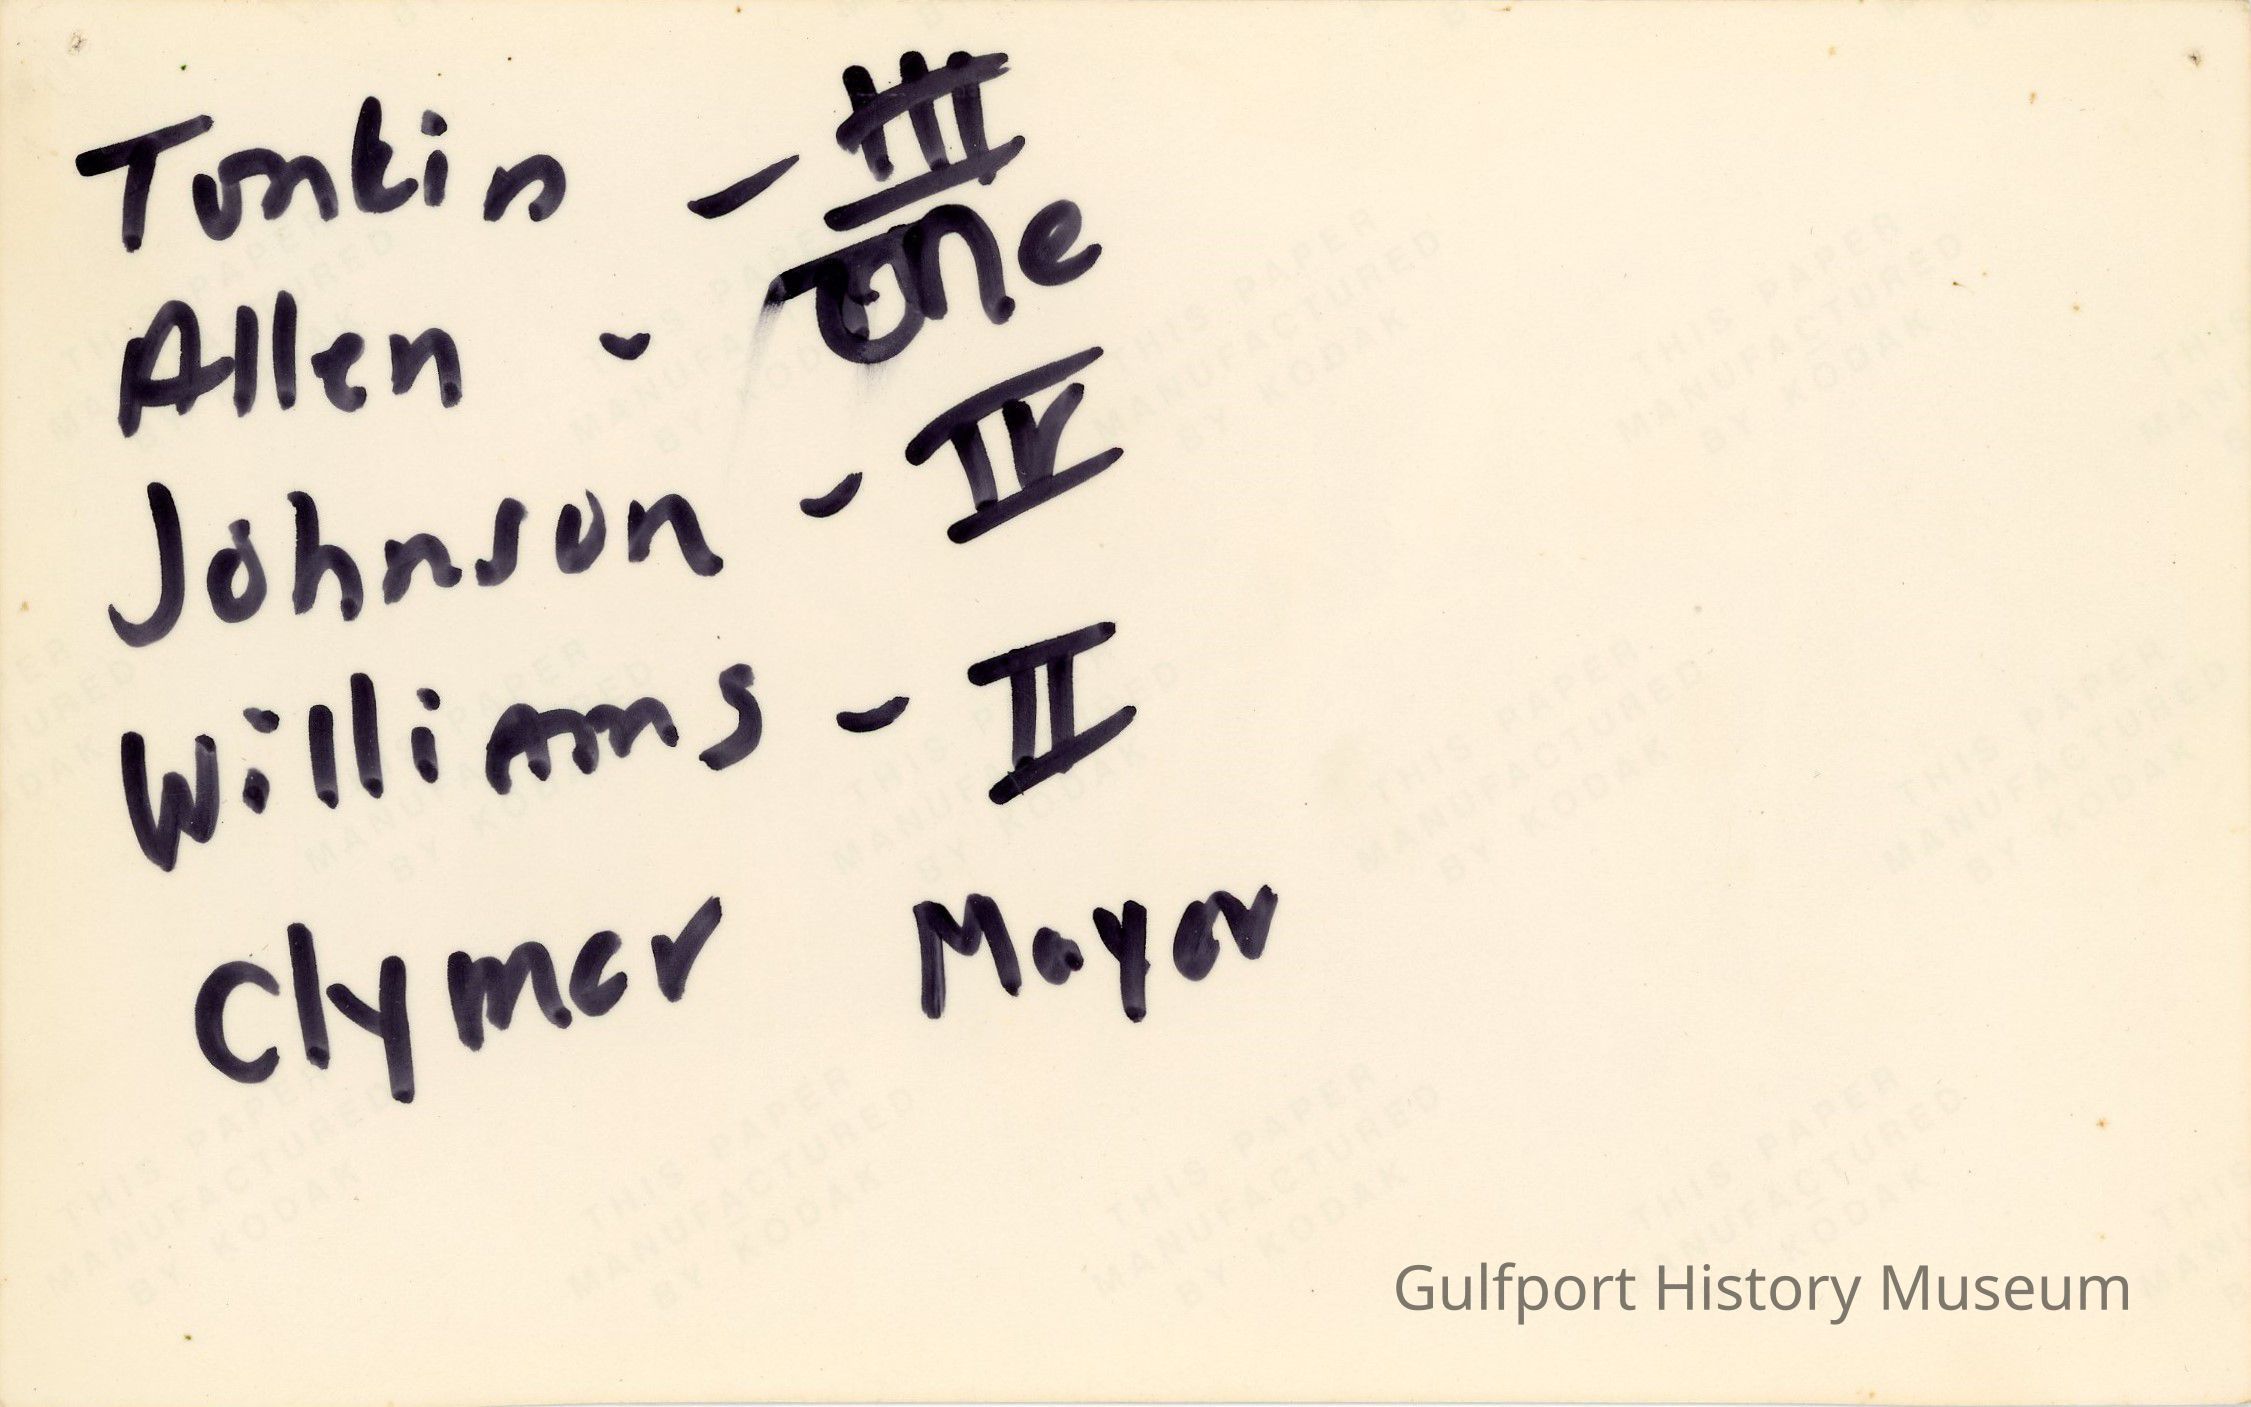 Tonkin - III
Allen - one
Johnson - IV
Williams - II
Clymer Mayor
THIS PAPER
MANUFACTURED
BY KODAK
Gulfport History Museum